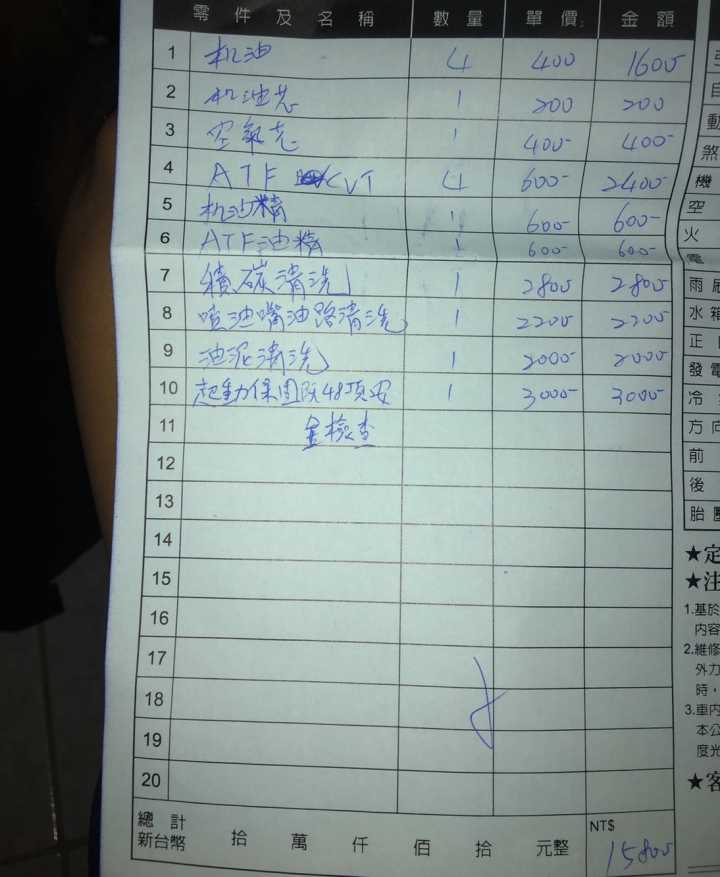 零件及名稱 數量 單價 金額
1 机油 4 400 1600-
2 机油芯 1 200 200
3 空氣芯 1 400- 400-
4 ATF CVT 4 600- 2400-
5 机油精 1 600- 600-
6 ATF油精 1 600- 600-
7 積碳清洗 1 2800 2800
8 噴油嘴油路清洗 1 2200- 2200
9 油泥清洗 1 2000- 2000
10 起動保固 48項安 1 3000- 3000-
11 全檢查
12
13
14
15
16
17
18
19
20
總計
新台幣 拾 萬 仟 佰 拾 元整 NT$ 15800
自
動
煞
機
空
火
電
雨刷
水箱
正
發電
冷
方向
前
後
胎壓
★定
★注
1.基於
內容
2.維修
外力
時，
3.車內
本公
度光
★客